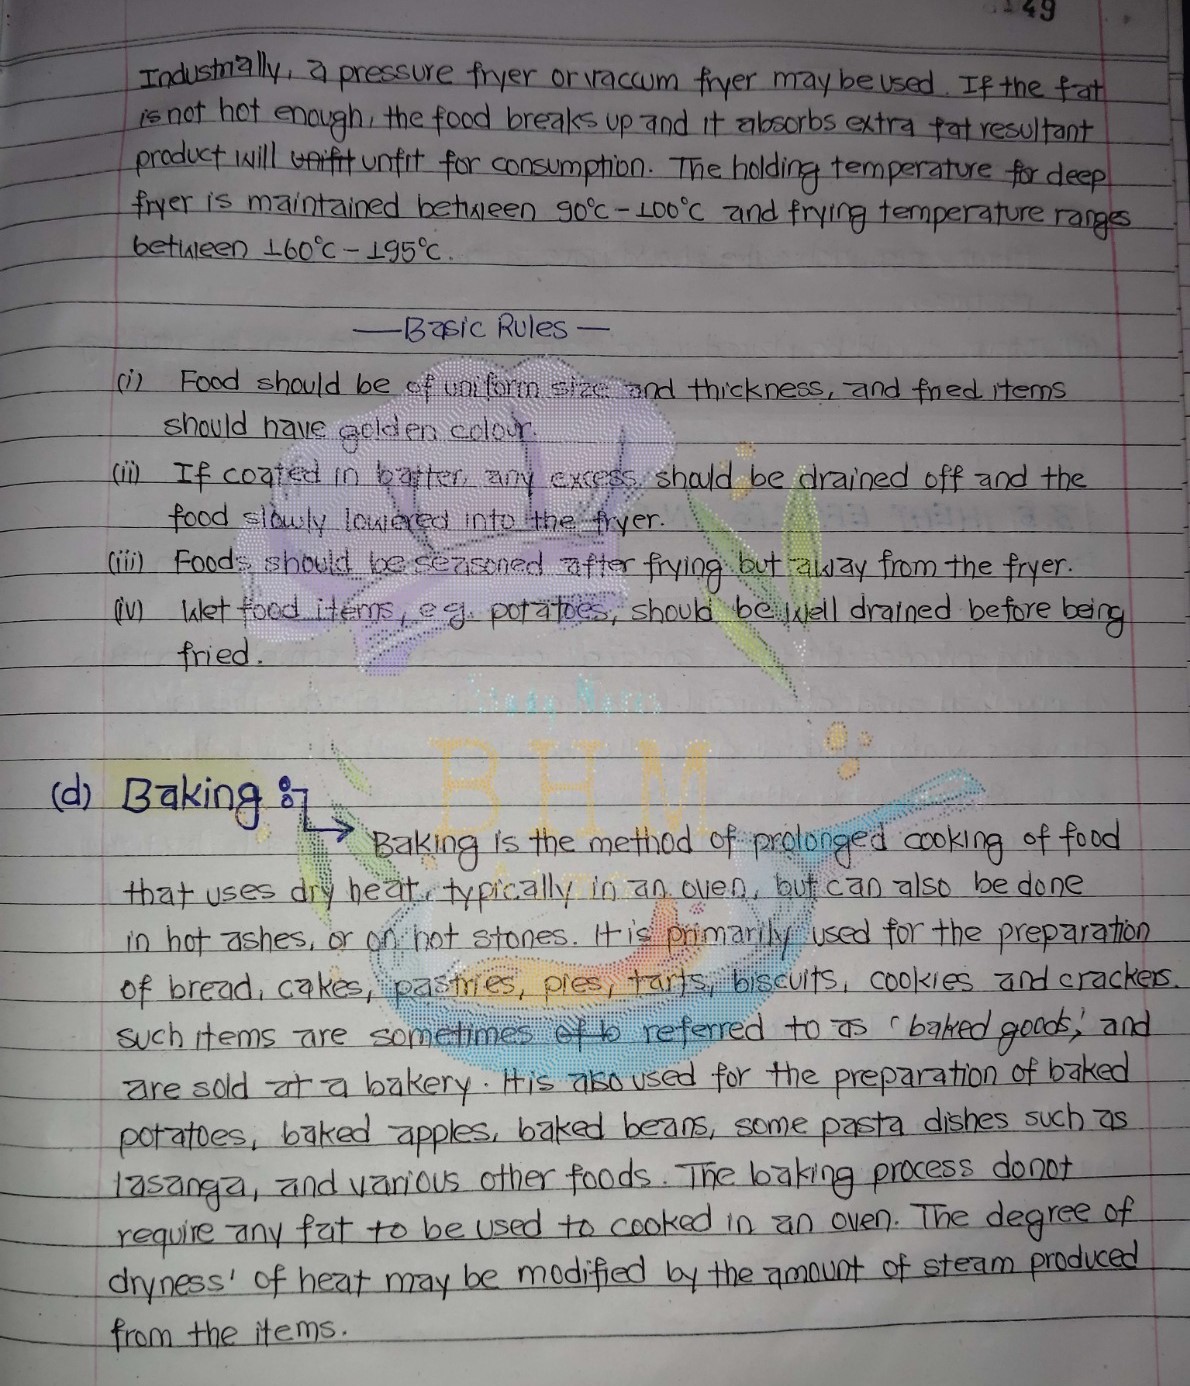 49
Industrially, a pressure fryer or vaccum fryer may be used. If the fat
is not hot enough, the food breaks up and it absorbs extra fat resultant
product will unfit for consumption. The holding temperature for deep
fryer is maintained between 90°c - 100°c and frying temperature ranges
between 160°c - 195°c.
— Basic Rules —
(i) Food should be of uniform size and thickness, and fried items
should have golden colour.
(ii) If coated in batter, any excess should be drained off and the
food slowly lowered into the fryer.
(iii) Foods should be seasoned after frying but away from the fryer.
(iv) Wet food items, e.g. potatoes, should be well drained before being
fried.
Study Notes
BHM
(d) Baking :-
Baking is the method of prolonged cooking of food
that uses dry heat, typically in an oven, but can also be done
in hot ashes, or on hot stones. It is primarily used for the preparation
of bread, cakes, pastries, pies, tarts, biscuits, cookies and crackers.
such items are sometimes referred to as 'baked goods,' and
are sold at a bakery. It is also used for the preparation of baked
potatoes, baked apples, baked beans, some pasta dishes such as
lasanga, and various other foods. The baking process donot
require any fat to be used to cooked in an oven. The degree of
dryness' of heat may be modified by the amount of steam produced
from the items.